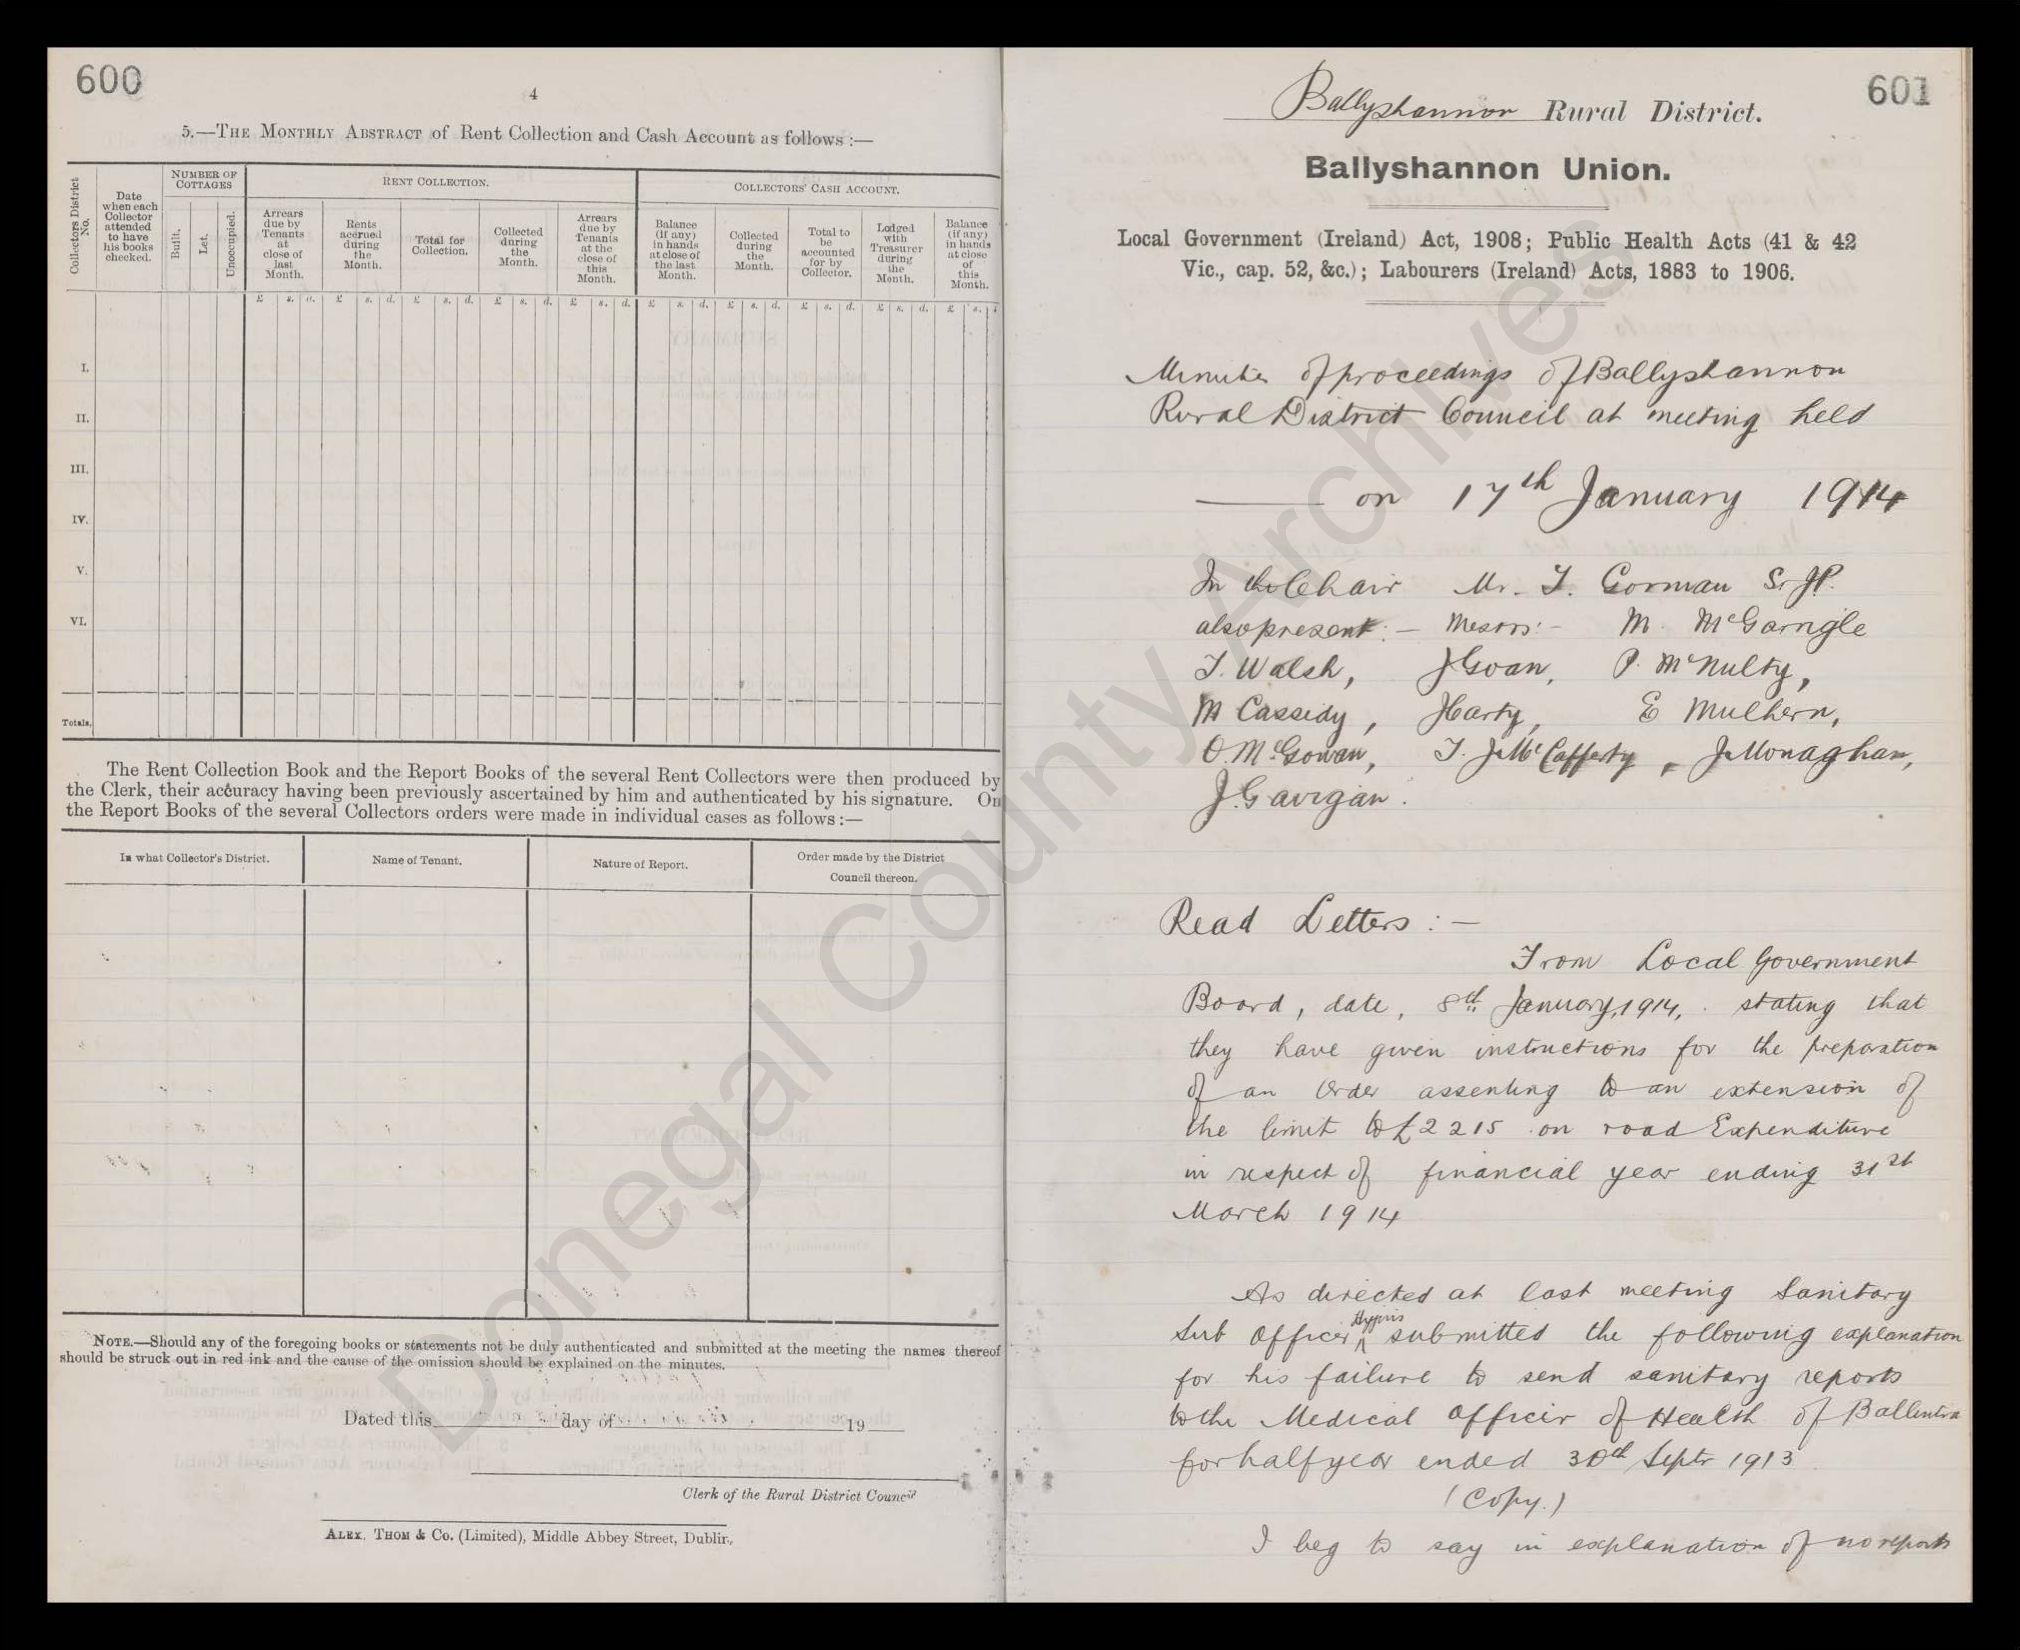 600
4
5.—THE MONTHLY ABSTRACT of Rent Collection and Cash Account as follows :—
Collectors District No.
Date when each Collector attended to have his books checked.
NUMBER OF COTTAGES
Built.
Let.
Unoccupied.
RENT COLLECTION.
Arrears due by Tenants at close of last Month.
Rents accrued during the Month.
Total for Collection.
Collected during the Month.
Arrears due by Tenants at the close of this Month.
COLLECTORS' CASH ACCOUNT.
Balance (if any) in hands at close of the last Month.
Collected during the Month.
Total to be accounted for by Collector.
Lodged with Treasurer during the Month.
Balance (if any) in hands at close of this Month.
£ s. d. £ s. d. £ s. d. £ s. d. £ s. d. £ s. d. £ s. d. £ s. d. £ s. d. £ s.
I.
II.
III.
IV.
V.
VI.
Totals.
The Rent Collection Book and the Report Books of the several Rent Collectors were then produced by
the Clerk, their accuracy having been previously ascertained by him and authenticated by his signature. On
the Report Books of the several Collectors orders were made in individual cases as follows :—
In what Collector's District.
Name of Tenant.
Nature of Report.
Order made by the District
Council thereon.
NOTE.—Should any of the foregoing books or statements not be duly authenticated and submitted at the meeting the names thereof
should be struck out in red ink and the cause of the omission should be explained on the minutes.
Dated this day of 19
Clerk of the Rural District Council
ALEX. THOM & CO. (Limited), Middle Abbey Street, Dublin.
601
Ballyshannon Rural District.
Ballyshannon Union.
Local Government (Ireland) Act, 1908; Public Health Acts (41 & 42
Vic., cap. 52, &c.); Labourers (Ireland) Acts, 1883 to 1906.
Minutes of proceedings of Ballyshannon
Rural District Council at meeting held
on 17th January 1914
In the Chair Mr. T. Gorman Sr. JP.
also present :— Messrs :- M. McGarrigle
T. Walsh, J Goan, P. McNulty,
M Cassidy, J Harty, E Mulhern,
O. McGowan, T. J. McCafferty, J. Monaghan,
J. Gavigan.
Read Letters :—
From Local Government
Board, date, 8th January, 1914, stating that
they have given instructions for the preparation
of an Order assenting to an extension of
the limit to £2215 on road Expenditure
in respect of financial year ending 31st
March 1914
As directed at last meeting Sanitary
Sub Officer submitted the following explanation
for his failure to send sanitary reports
to the Medical Officer of Health of Ballintra
for half year ended 30th Septr 1913
(Copy.)
I beg to say in explanation of no reports
Donegal County Archives